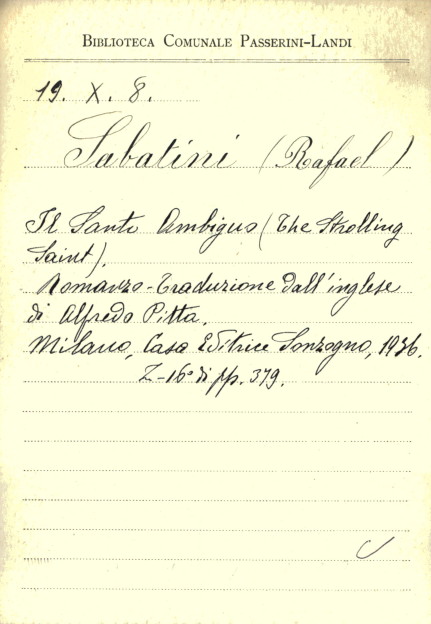 BIBLIOTECA COMUNALE PASSERINI-LANDI
19. X. 8.
Sabatini (Rafael)
Il Santo Ambiguo (The Strolling
Saint).
Romanzo - Traduzione dall'inglese
di Alfredo Pitta.
Milano, Casa Editrice Sonzogno, 1936.
Z-16° di pp. 379.